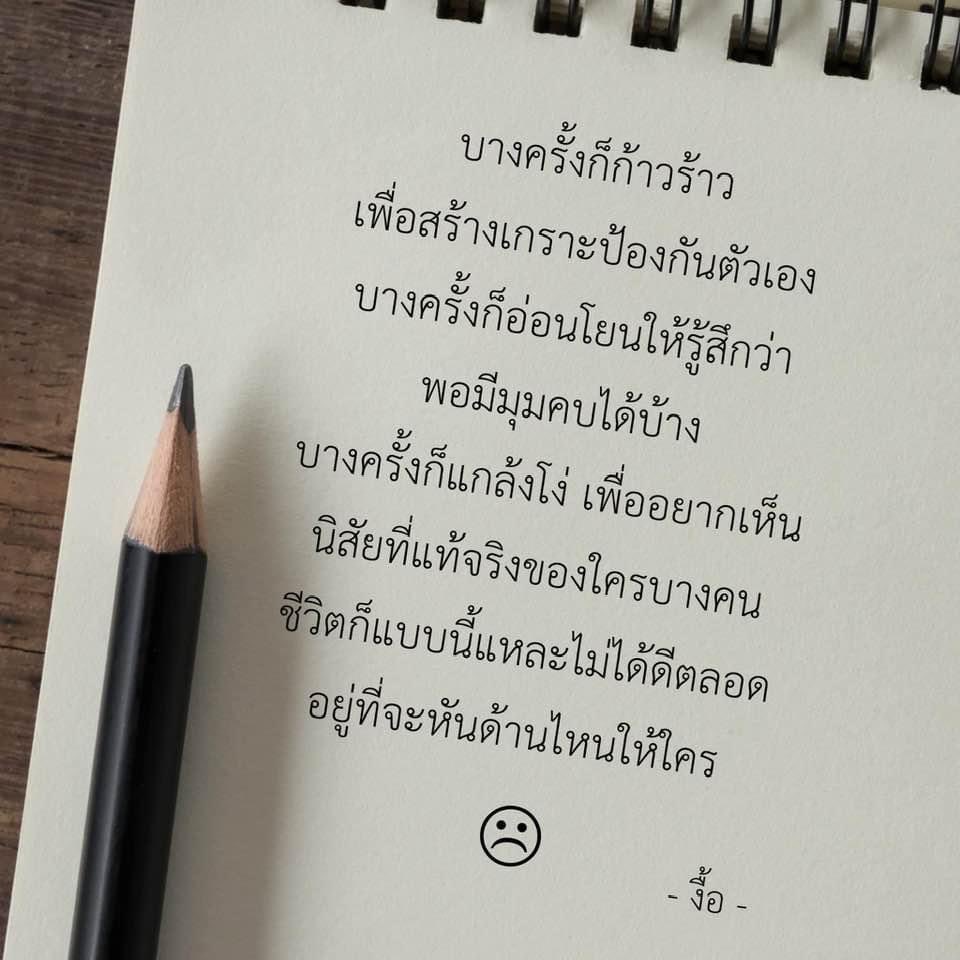 บางครั้งก็ก้าวร้าว
เพื่อสร้างเกราะป้องกันตัวเอง
บางครั้งก็อ่อนโยนให้รู้สึกว่า
พอมีมุมคบได้บ้าง
บางครั้งก็แกล้งโง่ เพื่ออยากเห็น
นิสัยที่แท้จริงของใครบางคน
ชีวิตก็แบบนี้แหละไม่ได้ดีตลอด
อยู่ที่จะหันด้านไหนให้ใคร
- งื้อ -